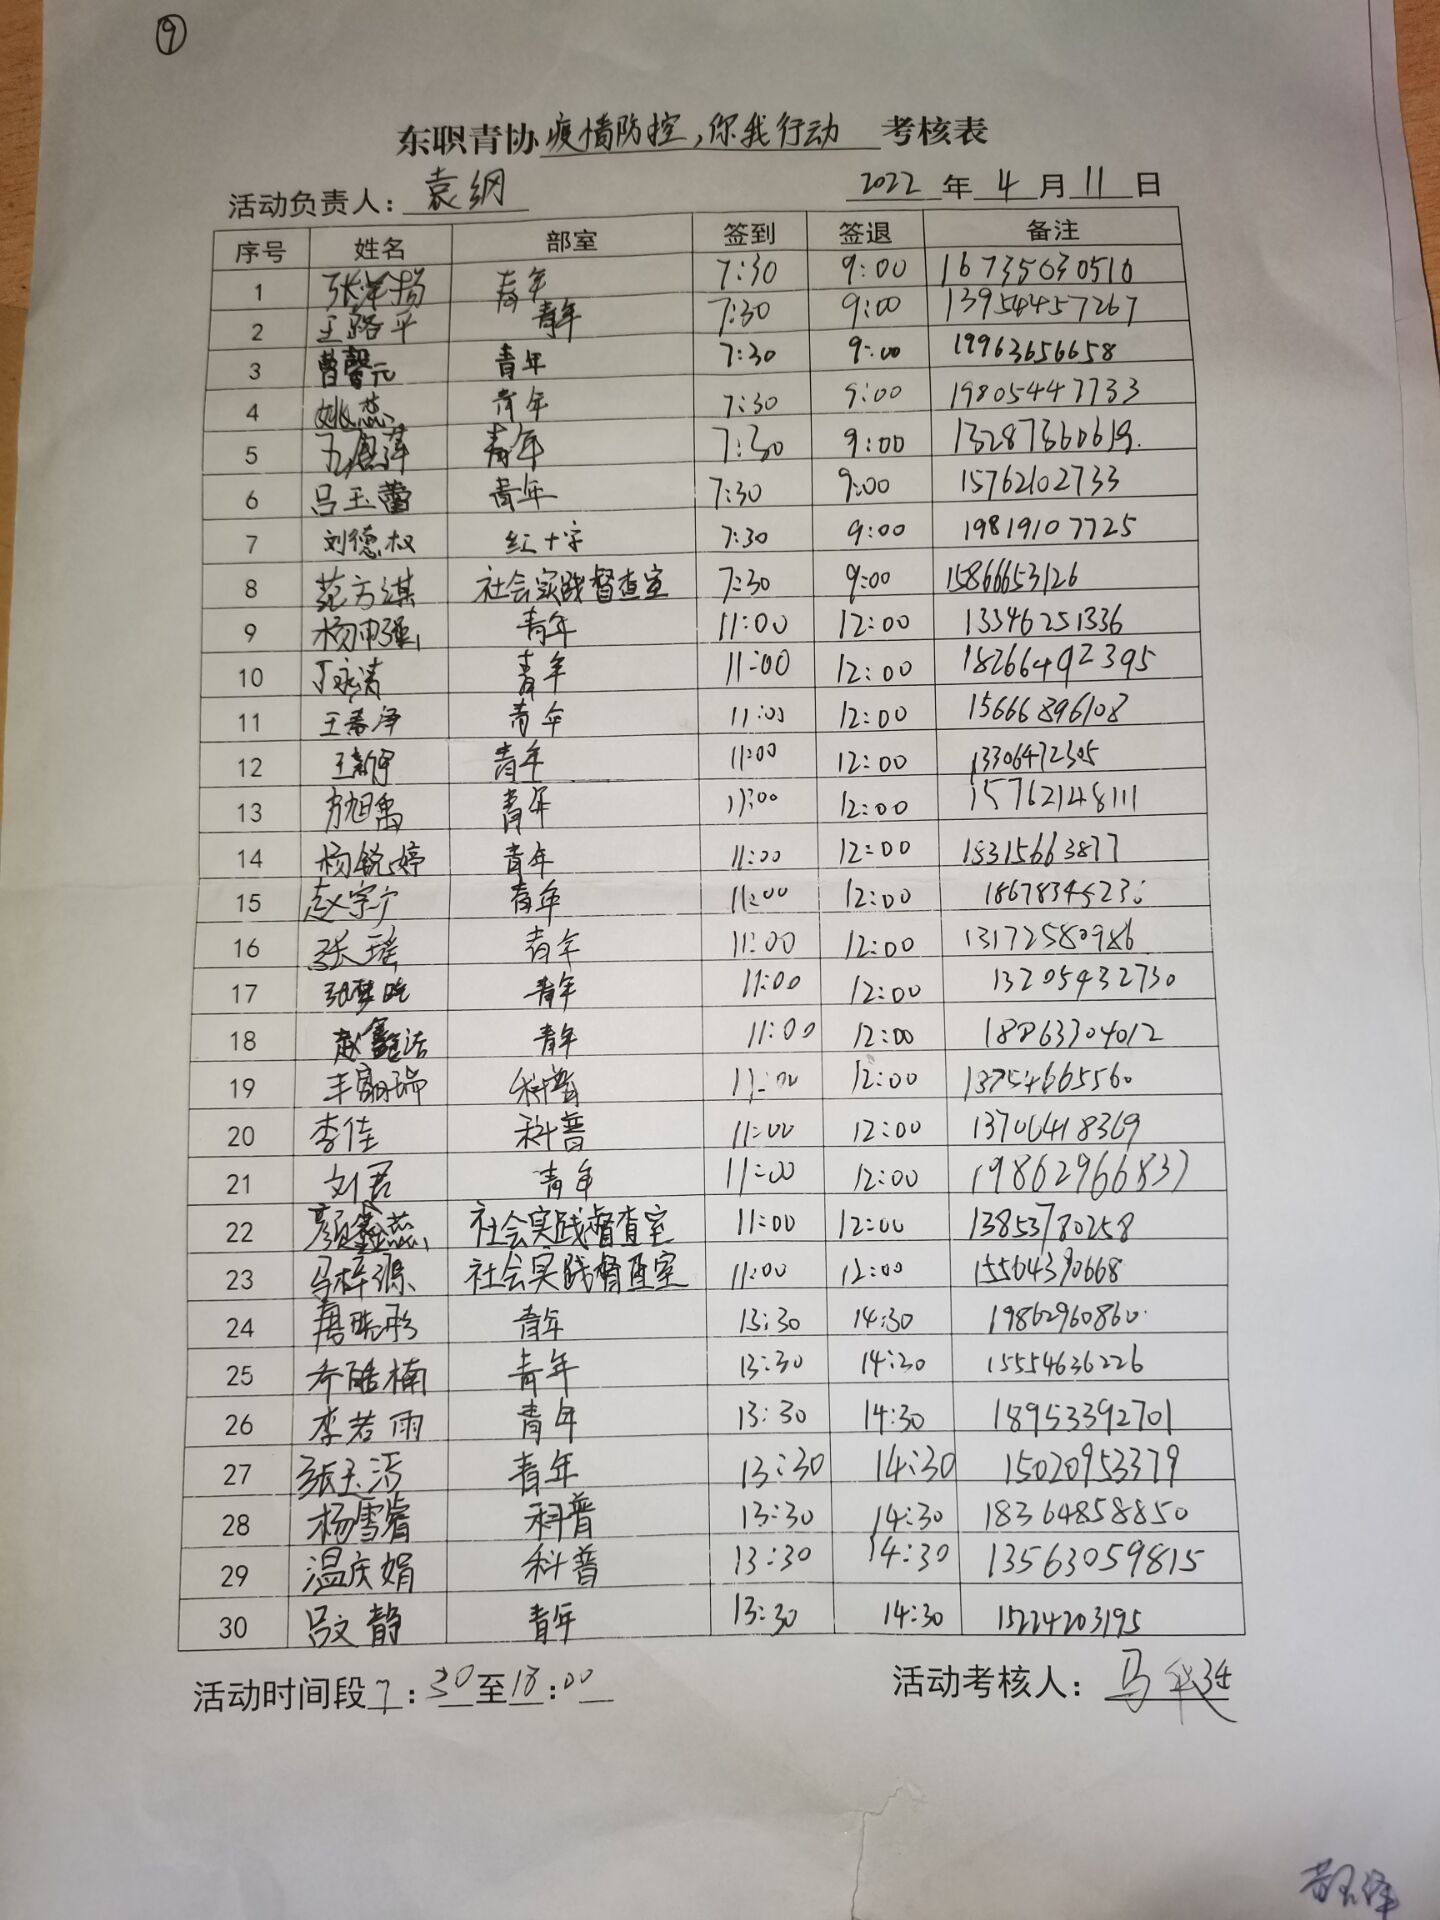 ⑨
东职青协疫情防控,你我行动 考核表
活动负责人: 袁纲 2022 年 4 月 11 日
序号 姓名 部室 签到 签退 备注
1 青年 7:30 9:00 16735030510
2 王路平 青年 7:30 9:00 13954457267
3 曹馨元 青年 7:30 9:00 19963656658
4 姚蕊 青年 7:30 9:00 19805447733
5 青年 7:30 9:00 13287360619
6 吕玉蕾 青年 7:30 9:00 15762102733
7 刘德权 红十字 7:30 9:00 19819107725
8 范方谋 社会实践督查室 7:30 9:00 15866653126
9 杨申强 青年 11:00 12:00 13346251336
10 丁永清 青年 11:00 12:00 18266492395
11 王春泽 青年 11:00 12:00 15666896108
12 青年 11:00 12:00 13306472305
13 方旭禹 青年 11:00 12:00 15762148111
14 杨锐婷 青年 11:00 12:00 15315663877
15 赵宗宁 青年 11:00 12:00
16 张瑶 青年 11:00 12:00 13172580986
17 青年 11:00 12:00 13205432730
18 赵鑫洁 青年 11:00 12:00 18863304012
19 丰瑞 科普 11:00 12:00 13754665560
20 李佳 科普 11:00 12:00 13706418369
21 刘君 青年 11:00 12:00 19862966837
22 颜鑫蕊 社会实践督查室 11:00 12:00 13853780258
23 马梓源 社会实践督查室 11:00 12:00 15564390668
24 青年 13:30 14:30 19862960860
25 乔皓楠 青年 13:30 14:30 15554636226
26 李若雨 青年 13:30 14:30 18953392701
27 张玉洁 青年 13:30 14:30 15020953379
28 杨雪睿 科普 13:30 14:30 18364858850
29 温庆娟 科普 13:30 14:30 13563059815
30 吕文静 青年 13:30 14:30 15224203195
活动时间段 7:30 至 18:00 活动考核人: 马